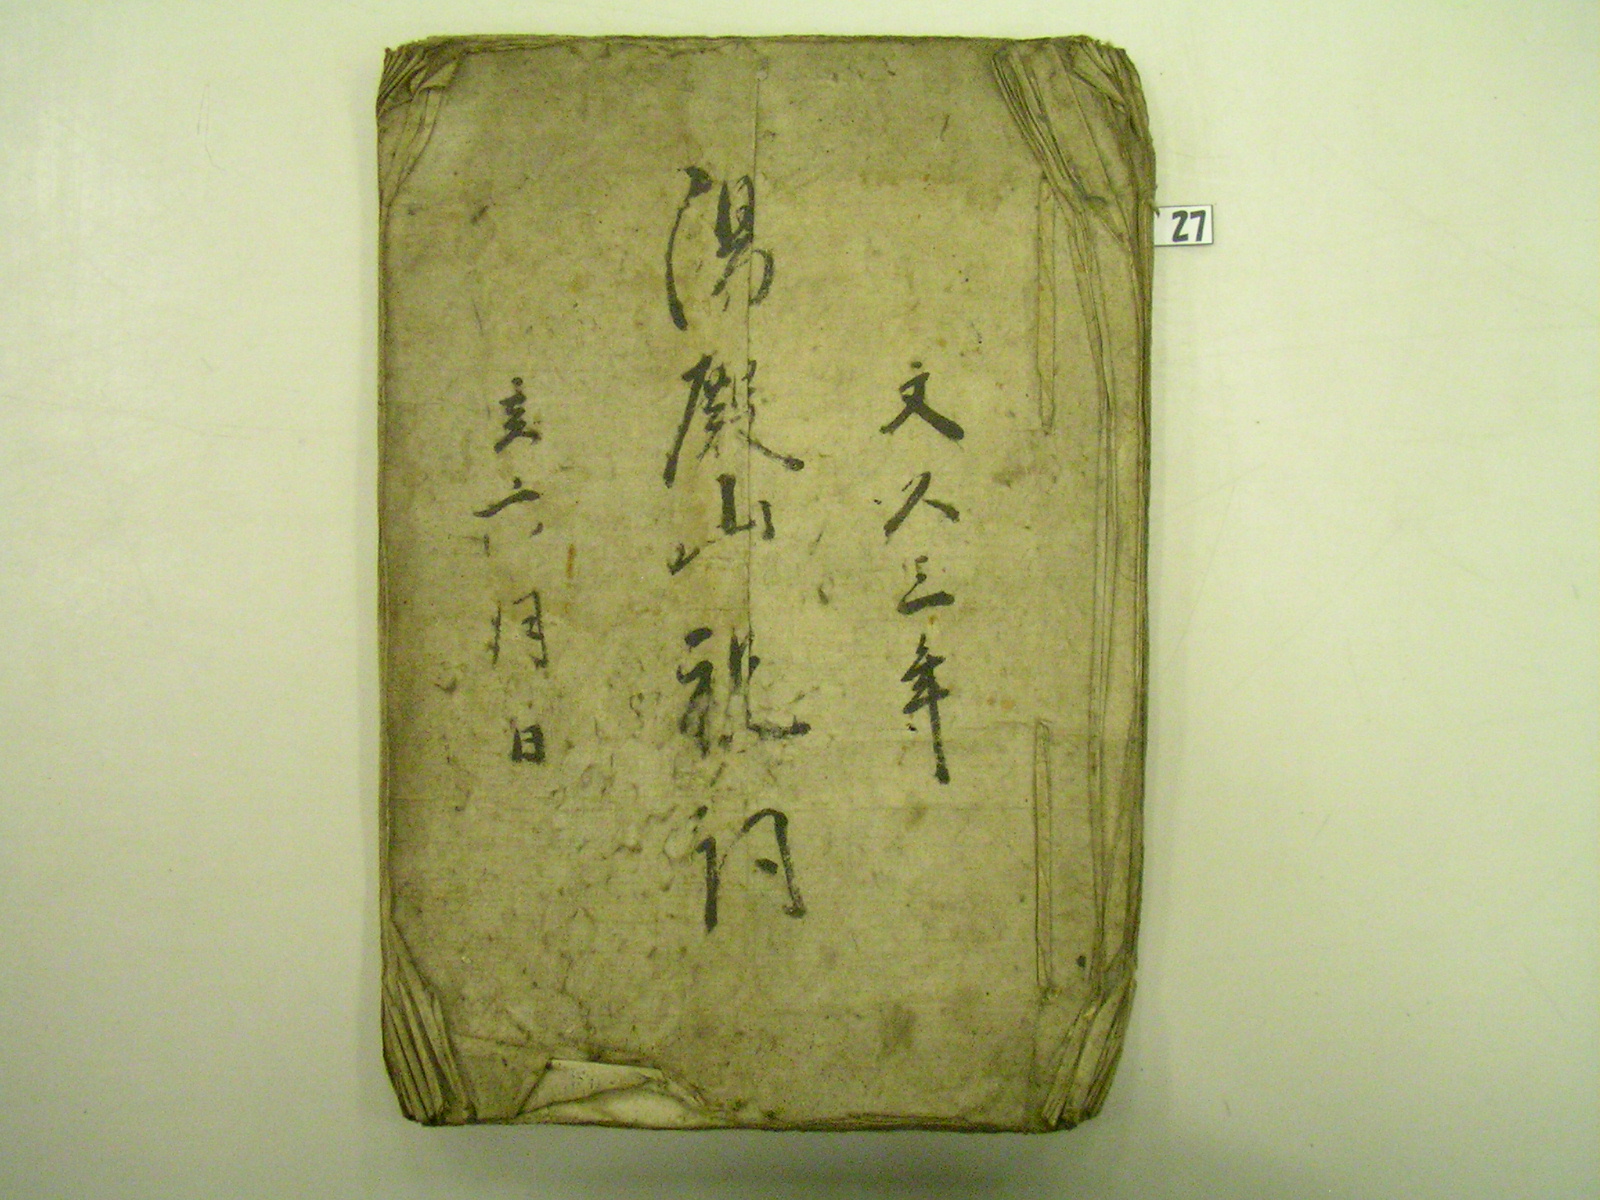 文久三年
湯殿山祝詞
亥六月日
27